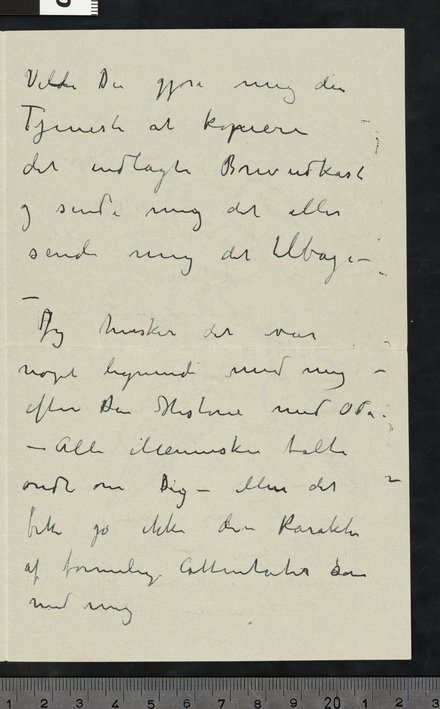 Vilde Du gjøre mig den
Tjeneste at kopiere
det indlagte Brevudkast
og sende mig det eller
sende mig det tilbage –
–
Jeg husker det var
noget lignende med mig –
efter Din Historie med Oda.
– Alle Mennesker talte
ondt om Dig – Men det
fik jo ikke den Karakter
af formelige Attentater som
med mig